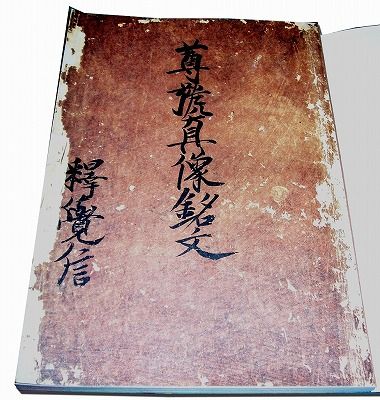 尊號真像銘文
釋覺信